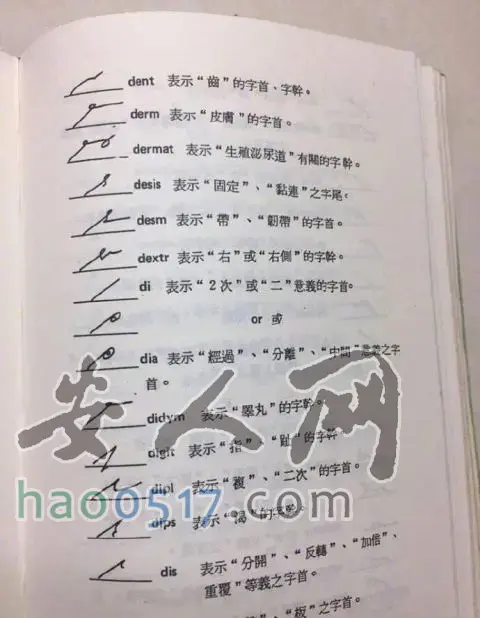 dent 表示“齒”的字首、字幹。
derm 表示“皮膚”的字首。
dermat 表示“生殖泌尿道”有關的字幹。
desis 表示“固定”、“黏連”之字尾。
desm 表示“帶”、“韌帶”的字首。
dextr 表示“右”或“右側”的字幹。
di 表示“2次”或“二”意義的字首。
or 或
dia 表示“經過”、“分離”、“中間”意義之字
首。
didym 表示“睪丸”的字幹。
digit 表示“指”、“趾”的字幹
dipl 表示“複”、“二次”的字首。
dips 表示“渴”的字幹。
dis 表示“分開”、“反轉”、“加倍”、
重覆”等義之字首。
”、“板”之字首。
安人网
hao0517.com